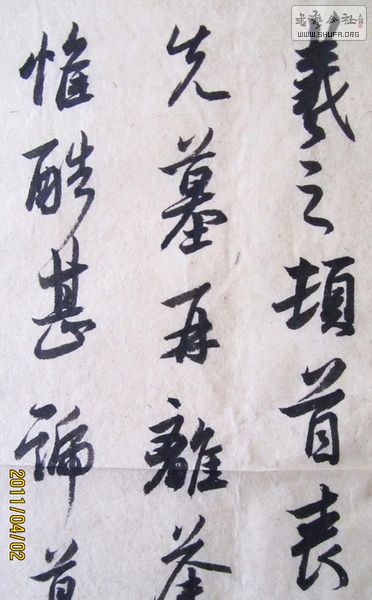 羲之頓首喪
先墓再離荼
惟酷甚號
書藝公社
WWW.SHUFA.ORG
2011/04/02